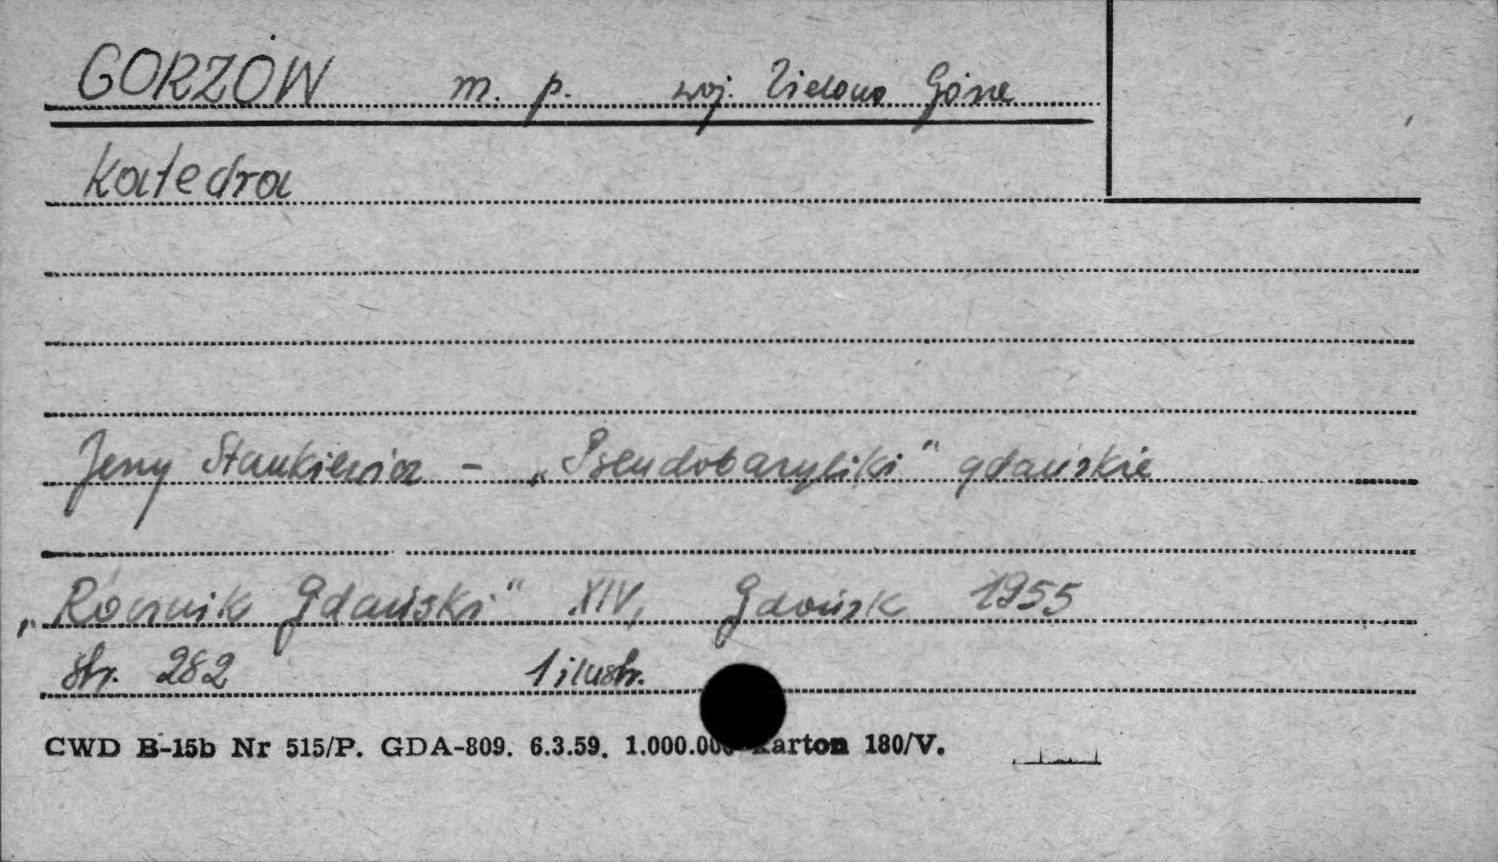 GORZÓW m. p. woj. Zielona Góra
Katedra
Jerzy Stankiewicz - „Pseudobazyliki" gdańskie
„Rocznik Gdański" XIV, Gdańsk 1955
str. 282 1 ilustr.
CWD B-15b Nr 515/P. GDA-809. 6.3.59. 1.000.000 Karton 180/V.